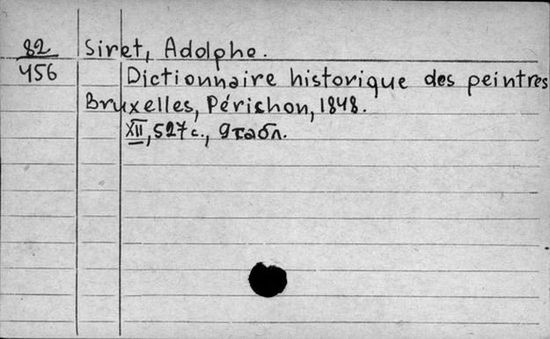 82
456
Siret, Adolphe.
Dictionnaire historique des peintres
Bruxelles, Périchon, 1848.
XII, 527 с., 9 табл.